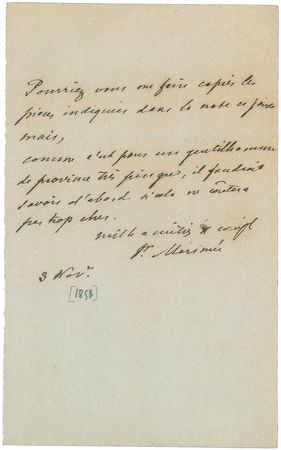 Pourriez vous me faire copier les
pièces indiquées dans la note ci jointe
mais,
comme c'est pour un gentilhomme
de province très pingre, il faudrait
savoir d'abord si cela ne coûtera
pas trop cher.
mille amitiés &
Pr Mérimée
3 Nov.
[1858]